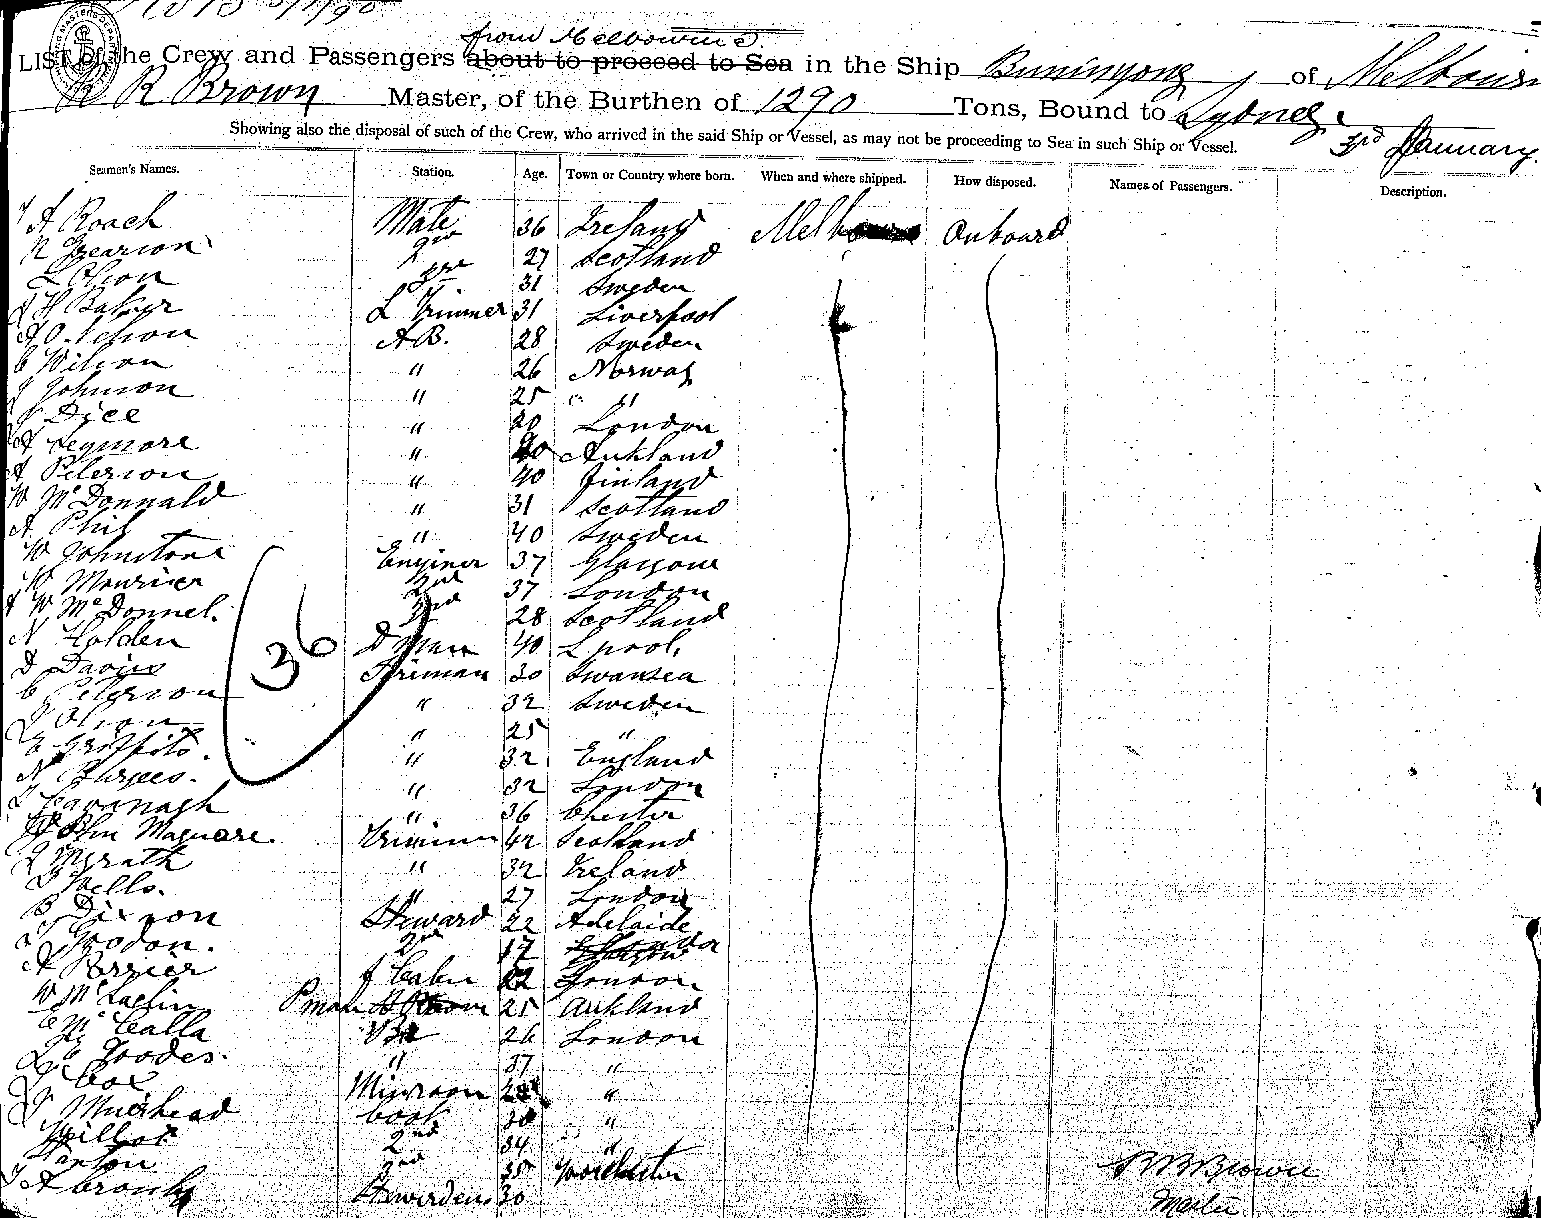 from Melbourne
LIST of the Crew and Passengers about to proceed to Sea in the Ship Buninyong of Melbourne
R R Brown Master, of the Burthen of 1290 Tons, Bound to Sydney
Showing also the disposal of such of the Crew, who arrived in the said Ship or Vessel, as may not be proceeding to Sea in such Ship or Vessel.
3rd January
Seamen's Names. Station. Age. Town or Country where born. When and where shipped. How disposed. Names of Passengers. Description.
A Roach Mate 36 Ireland Melbourne Onboard
N Gearson 2nd 27 Scotland
L Olson 3rd 31 Sweden
H Baker L Trimmer 31 Liverpool
A O. Nelson A B. 28 Sweden
C Wilson " 26 Norway
J Johnson " 25 " "
Dyce " 20 London
A Seymore " Aukland
A Peterson " 40 Finland
W McDonnald " 31 Scotland
A Phil " 40 Sweden
W Johnstone Enginer 37 Glasgow
W Mourier 2nd 37 London
W McDonnel. 28 Scotland
N Holden D Man 40 L pool.
D Davies Firiman 30 Swansea
C Peterson " 32 Sweden
J Olson " 25 "
E Griffits. " 32 England
N Burgees. " 32 London
Cavanagh " 36 Chester
John Maguare. Trimmer 42 Scotland
Mgrath " 32 Ireland
Wells. " 27 London
B Dixson Steward 22 Adelaide
Gordon. 2nd 17
A Perrier f Cabin 22 London
W McLaglin Pman 25 Aukland
C McCalla 26 London
Goodes. " 37 "
Cox Missroom "
J Muirhead Cook 30 "
Willot 2nd 34 "
Stanton 3rd 35 Worchester
A Stewerdess 30
36
R R Brown
Master